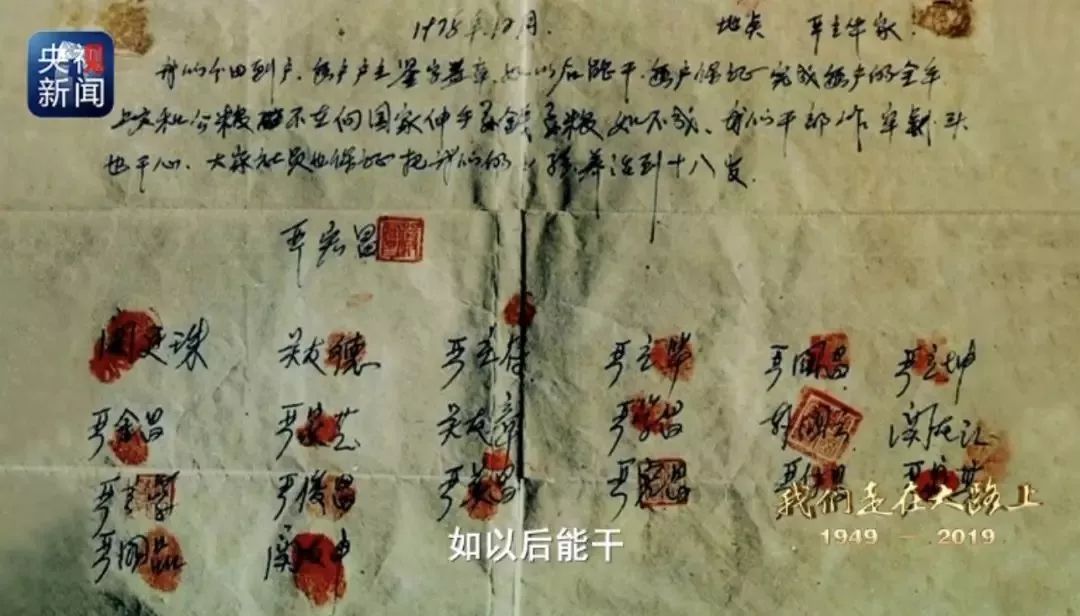 央视
新闻
1978年12月. 地点 严立华家.
我们分田到户,每户户主签字盖章,如以后能干,每户保证完成每户的全年
上交和公粮不在向国家伸手要钱要粮如不成,我们干部作牢杀头
也干心,大家社员也保证把我们的小孩养活到十八岁.
严宏昌
关廷珠 关友德 严立符 严立华 严国昌 严立坤
严金昌 严家芝 关友章 严学昌 韩国云 关友江
严立学 严俊昌 严美昌 严宏昌 严付昌
严国品 关友申
我们走在大路上
1949 - 2019
如以后能干